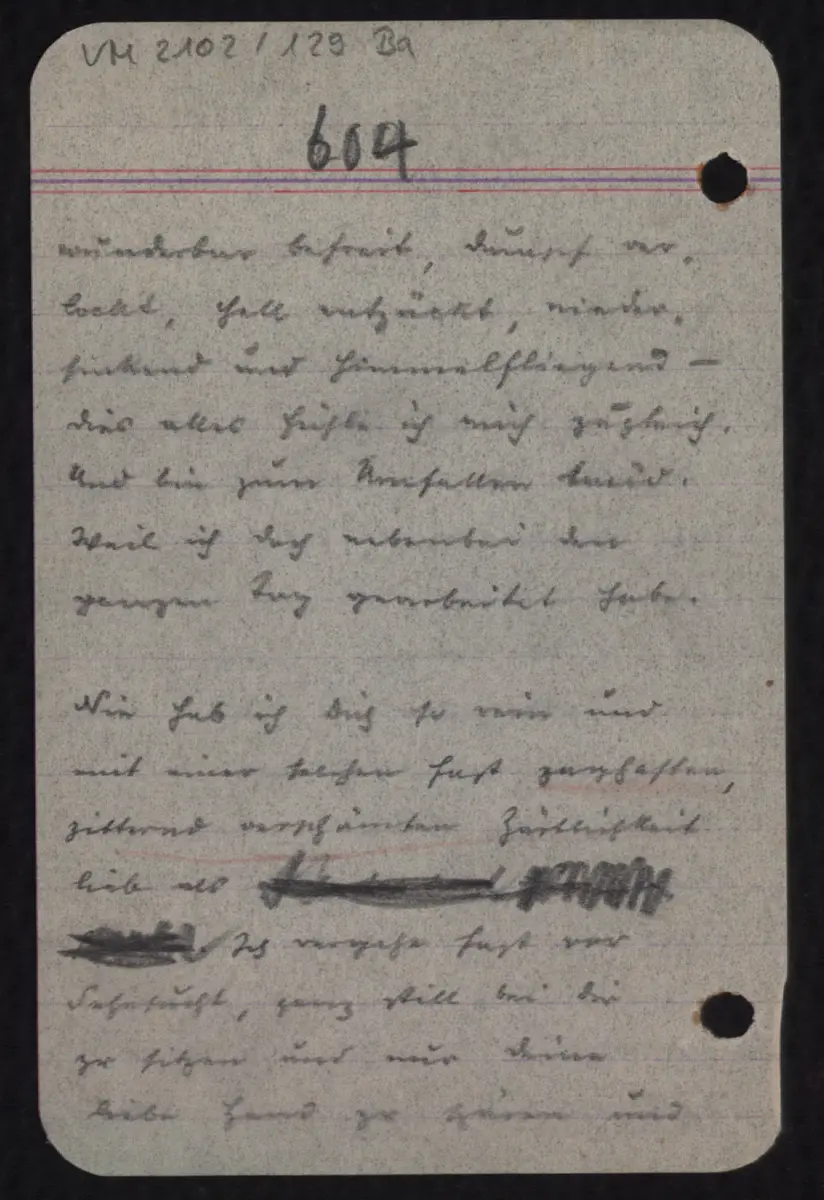 VM 2102 / 129 Ba
604
wunderbar befreit, dumpf ver-
lockt, hell entzückt, nieder-
sinkend und himmelfliegend –
dies alles fühle ich mich zugleich.
Und bin zum Umfallen müd.
Weil ich doch nebenbei den
ganzen Tag gearbeitet habe.
Nie hab ich Dich so rein und
mit einer solchen fast zaghaften,
zitternd verschämten Zärtlichkeit
lieb als
Ich vergehe fast vor
Sehnsucht, ganz still bei dir
zu sitzen und nur deine
liebe Hand zu spüren und